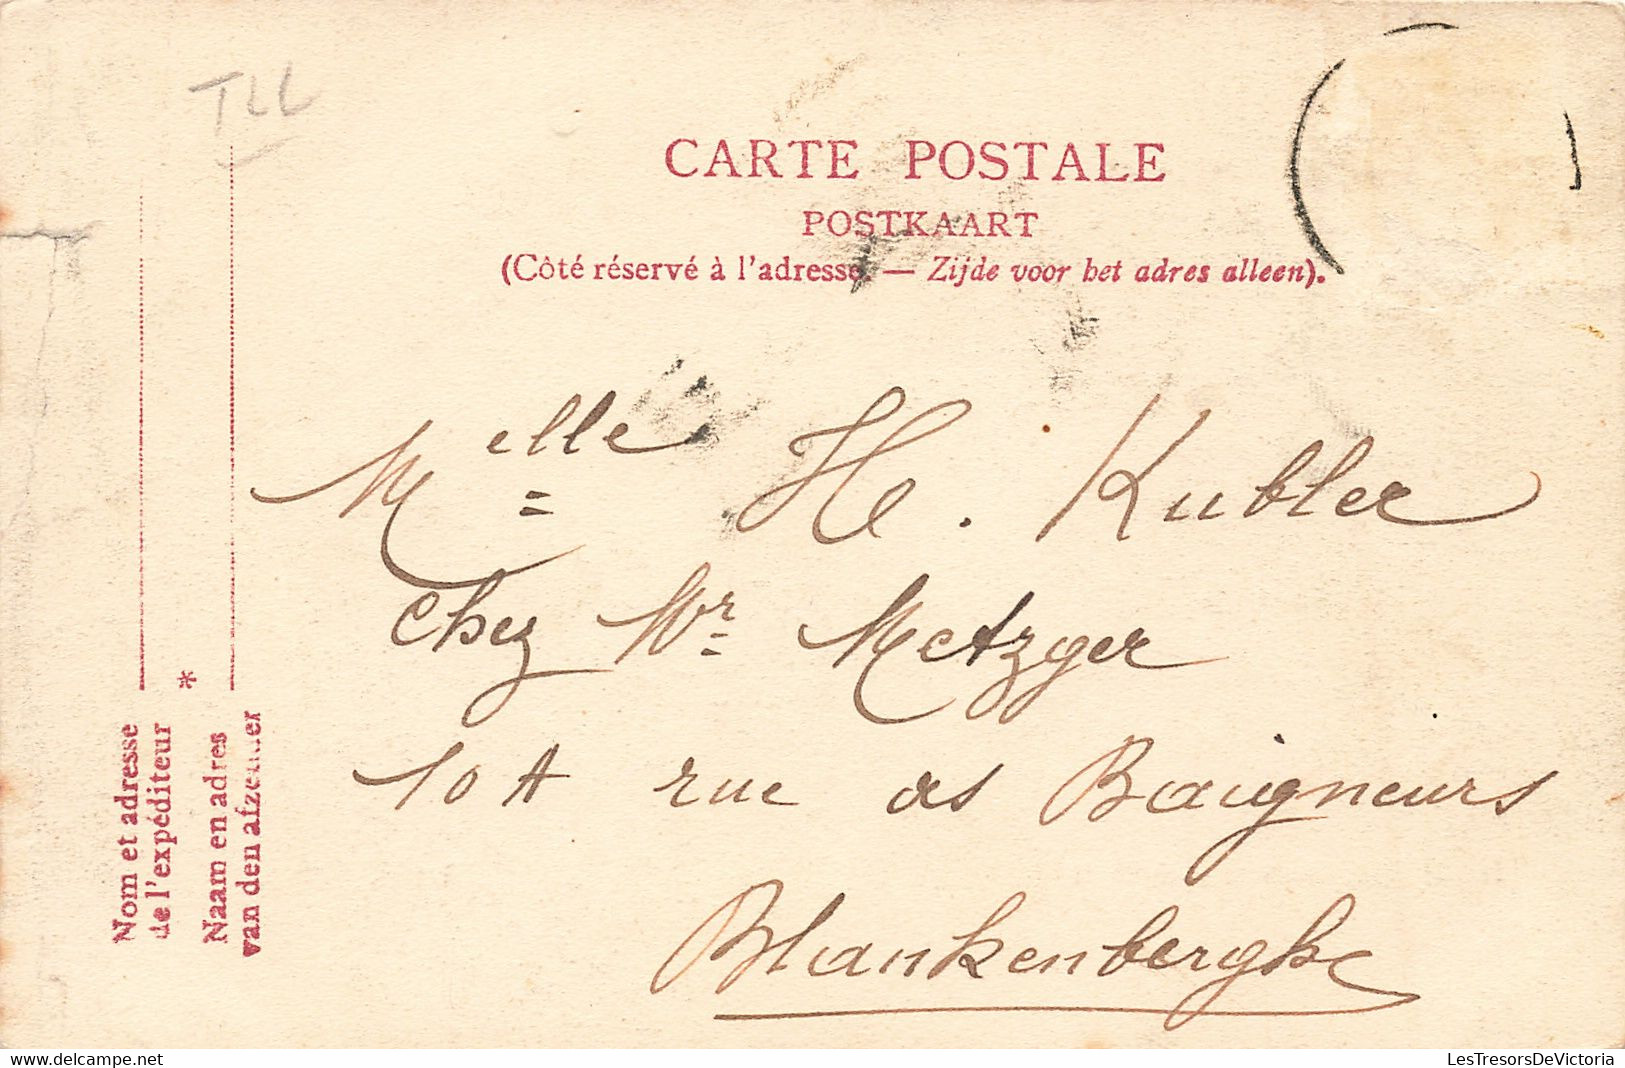 TLL
CARTE POSTALE
POSTKAART
(Côté réservé à l'adresse. — Zijde voor het adres alleen).
Melle H. Kubler
Chez Mr Metzger
10 A rue des Baigneurs
Blankenberghe
Nom et adresse
de l'expéditeur
*
Naam en adres
van den afzender
www.delcampe.net
LesTresorsDeVictoria